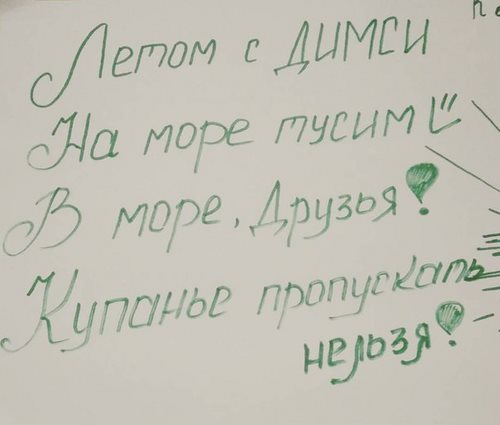 Летом с ДИМСИ
На море тусим
В море, Друзья!
Купанье пропускать
нельзя!